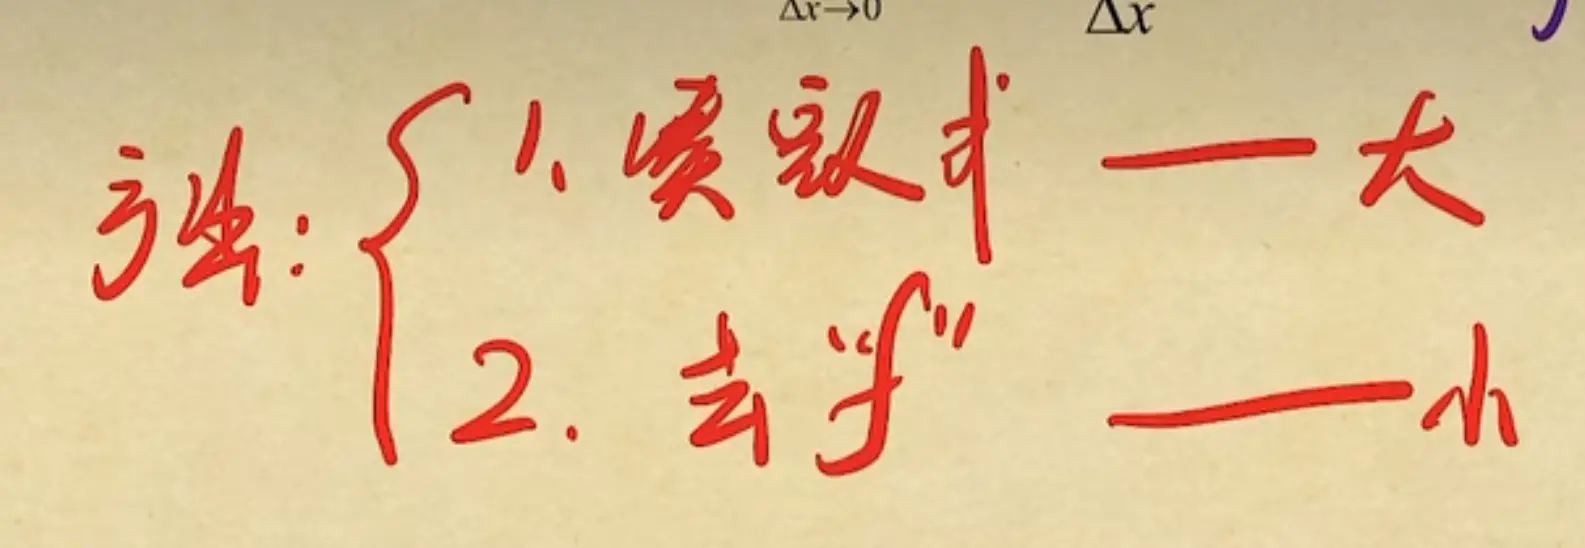 Δx→0 Δx
方法: { 1. 凑取求 — 大
2. 去“f” — 小